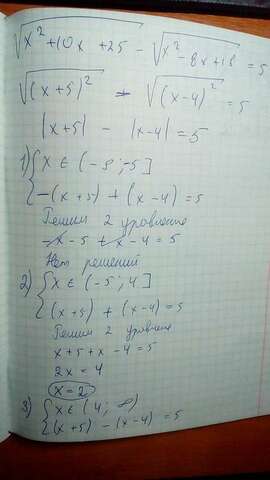 √x² + 10x + 25 - √x² - 8x + 16 = 5
√(x + 5)² - √(x - 4)² = 5
|x+5| - |x-4| = 5
1) { x ∈ (-∞; -5]
-(x + 5) + (x - 4) = 5
Решим 2 уравнение
-x - 5 + x - 4 = 5
Нет решений
2) { x ∈ (-5; 4]
(x + 5) + (x - 4) = 5
Решим 2 уравнение
x + 5 + x - 4 = 5
2x = 4
x = 2
3) { x ∈ (4; ∞)
(x + 5) - (x - 4) = 5